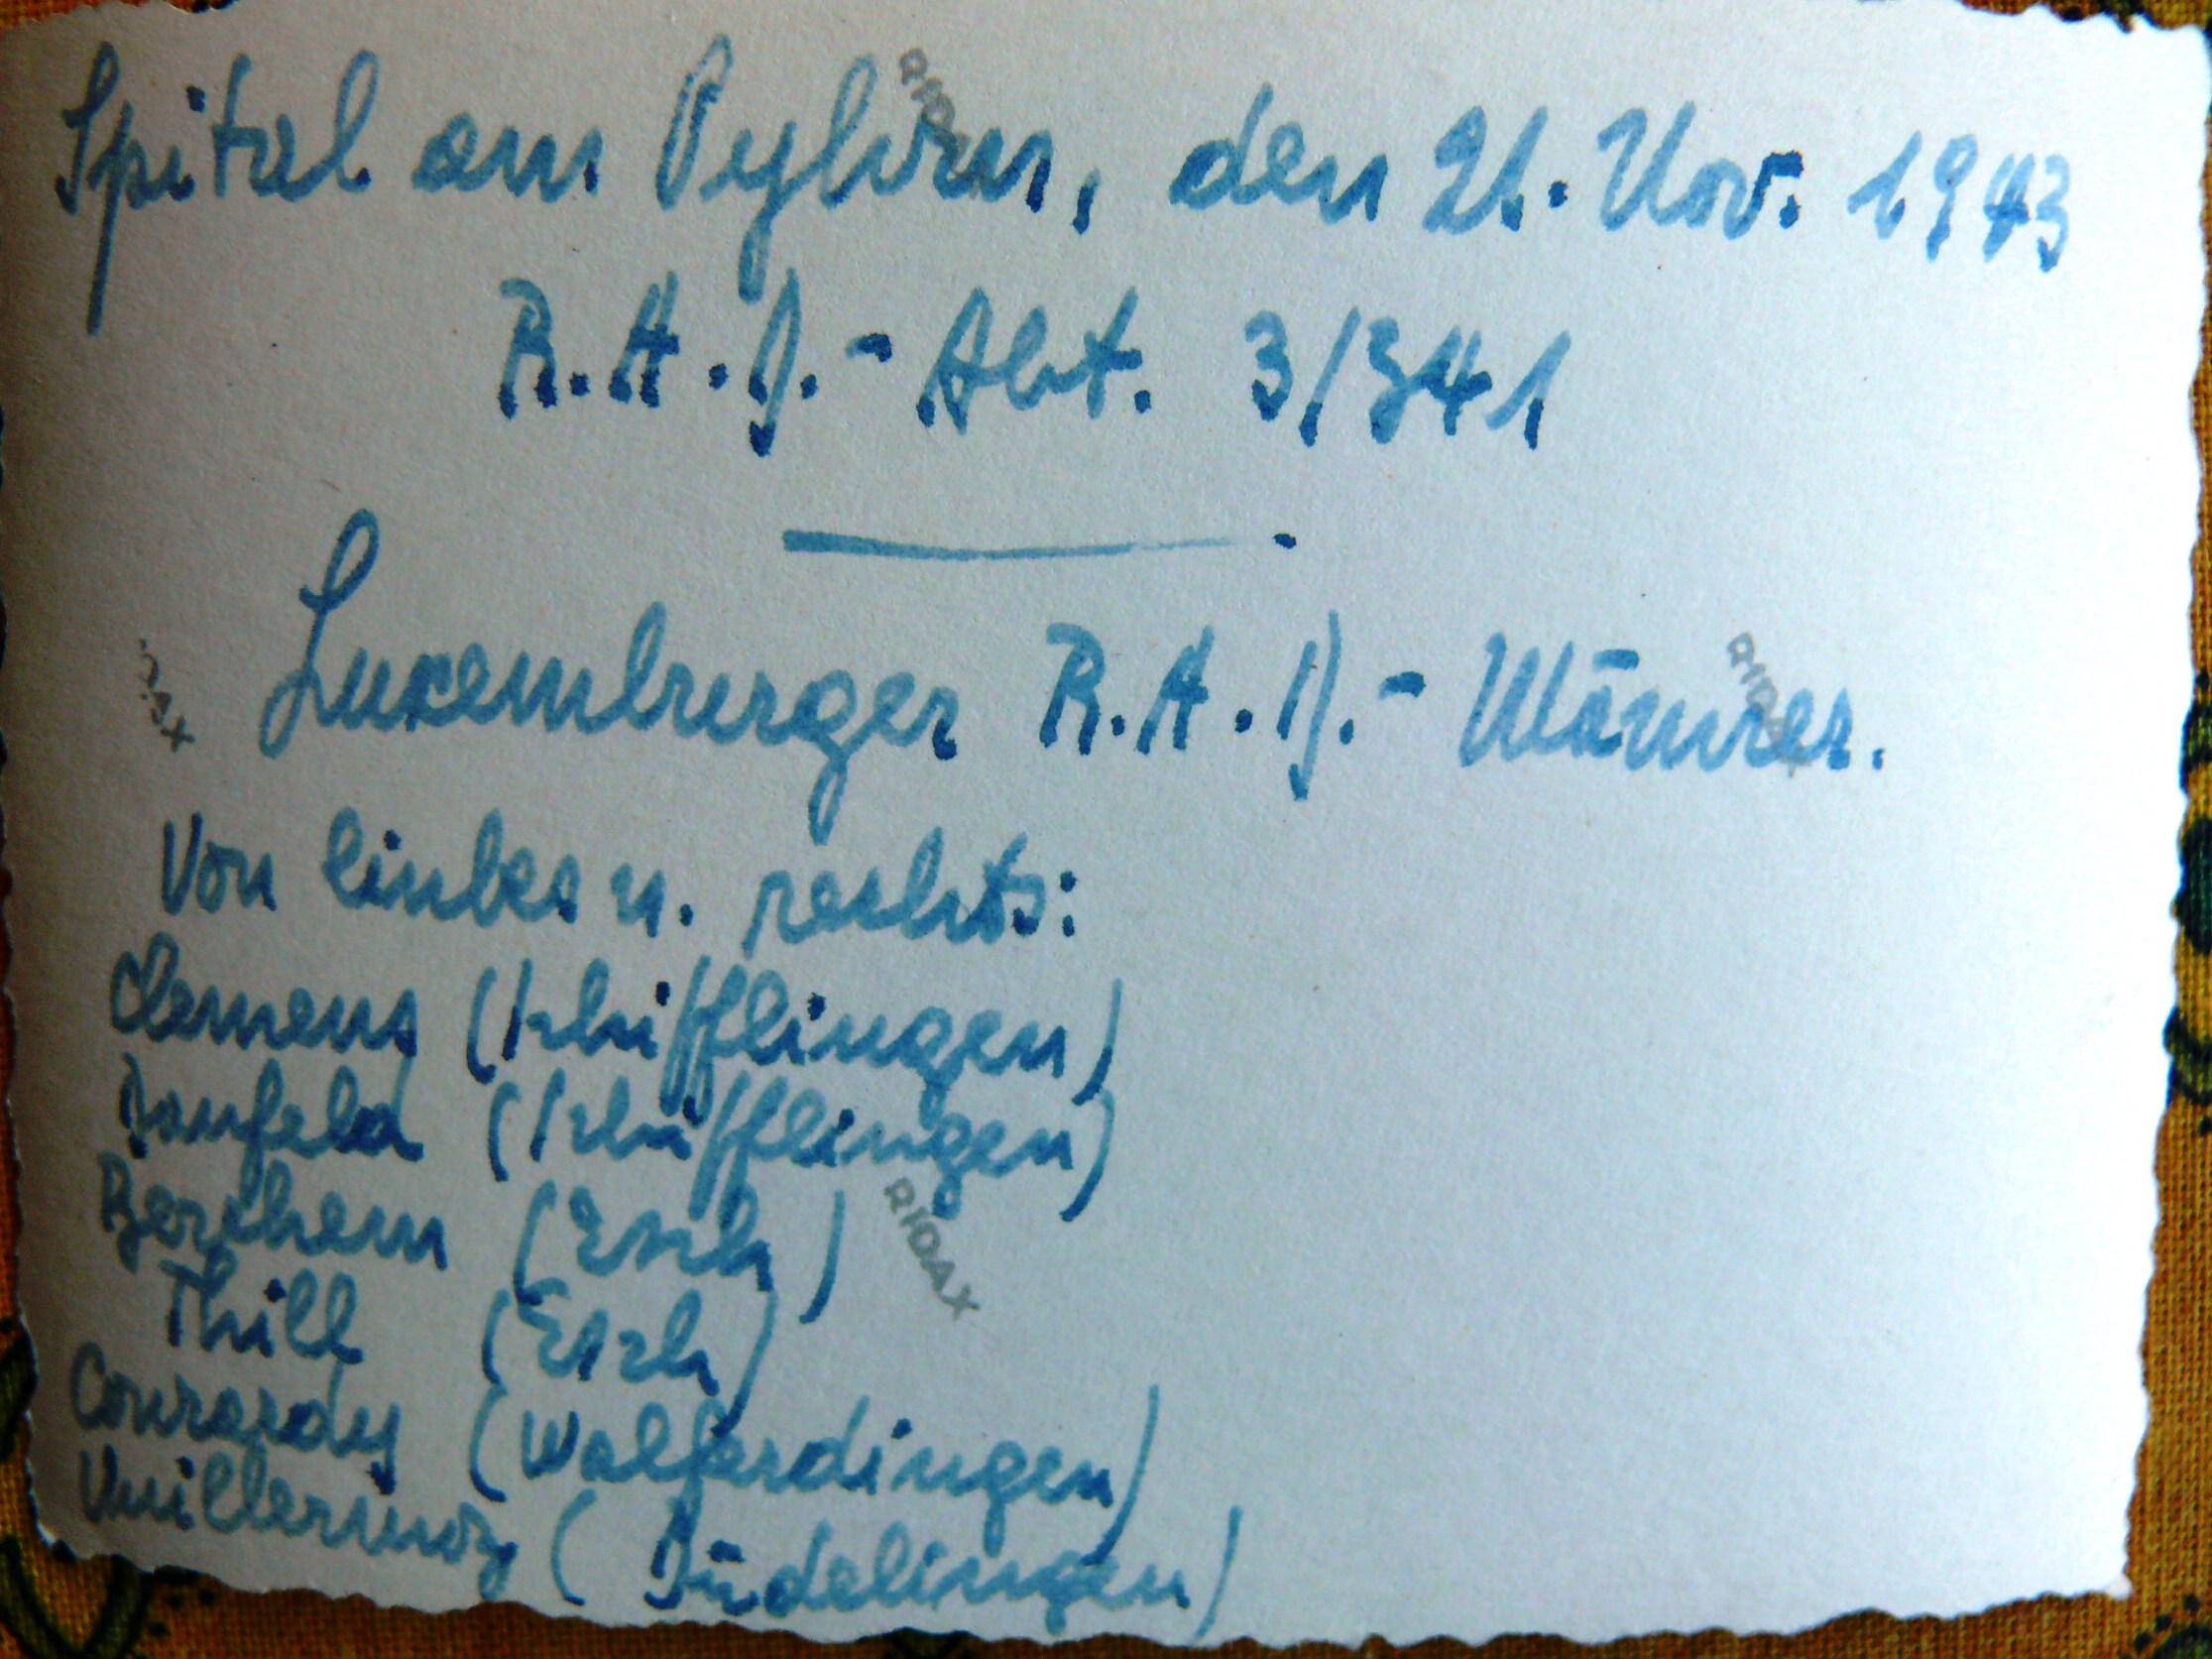 Spital am Pyhrn, den 21. Nov. 1943
R.A.D.- Abt. 3/341
Luxemburger R.A.D.- Männer.
Von linkes n. rechts:
Clemens (Schifflingen)
Donfeld (Schifflingen)
Berchem (Esch)
Thill (Esch)
Conrardy (Walferdingen)
Vuillermoz (Düdelingen)
RIDAX